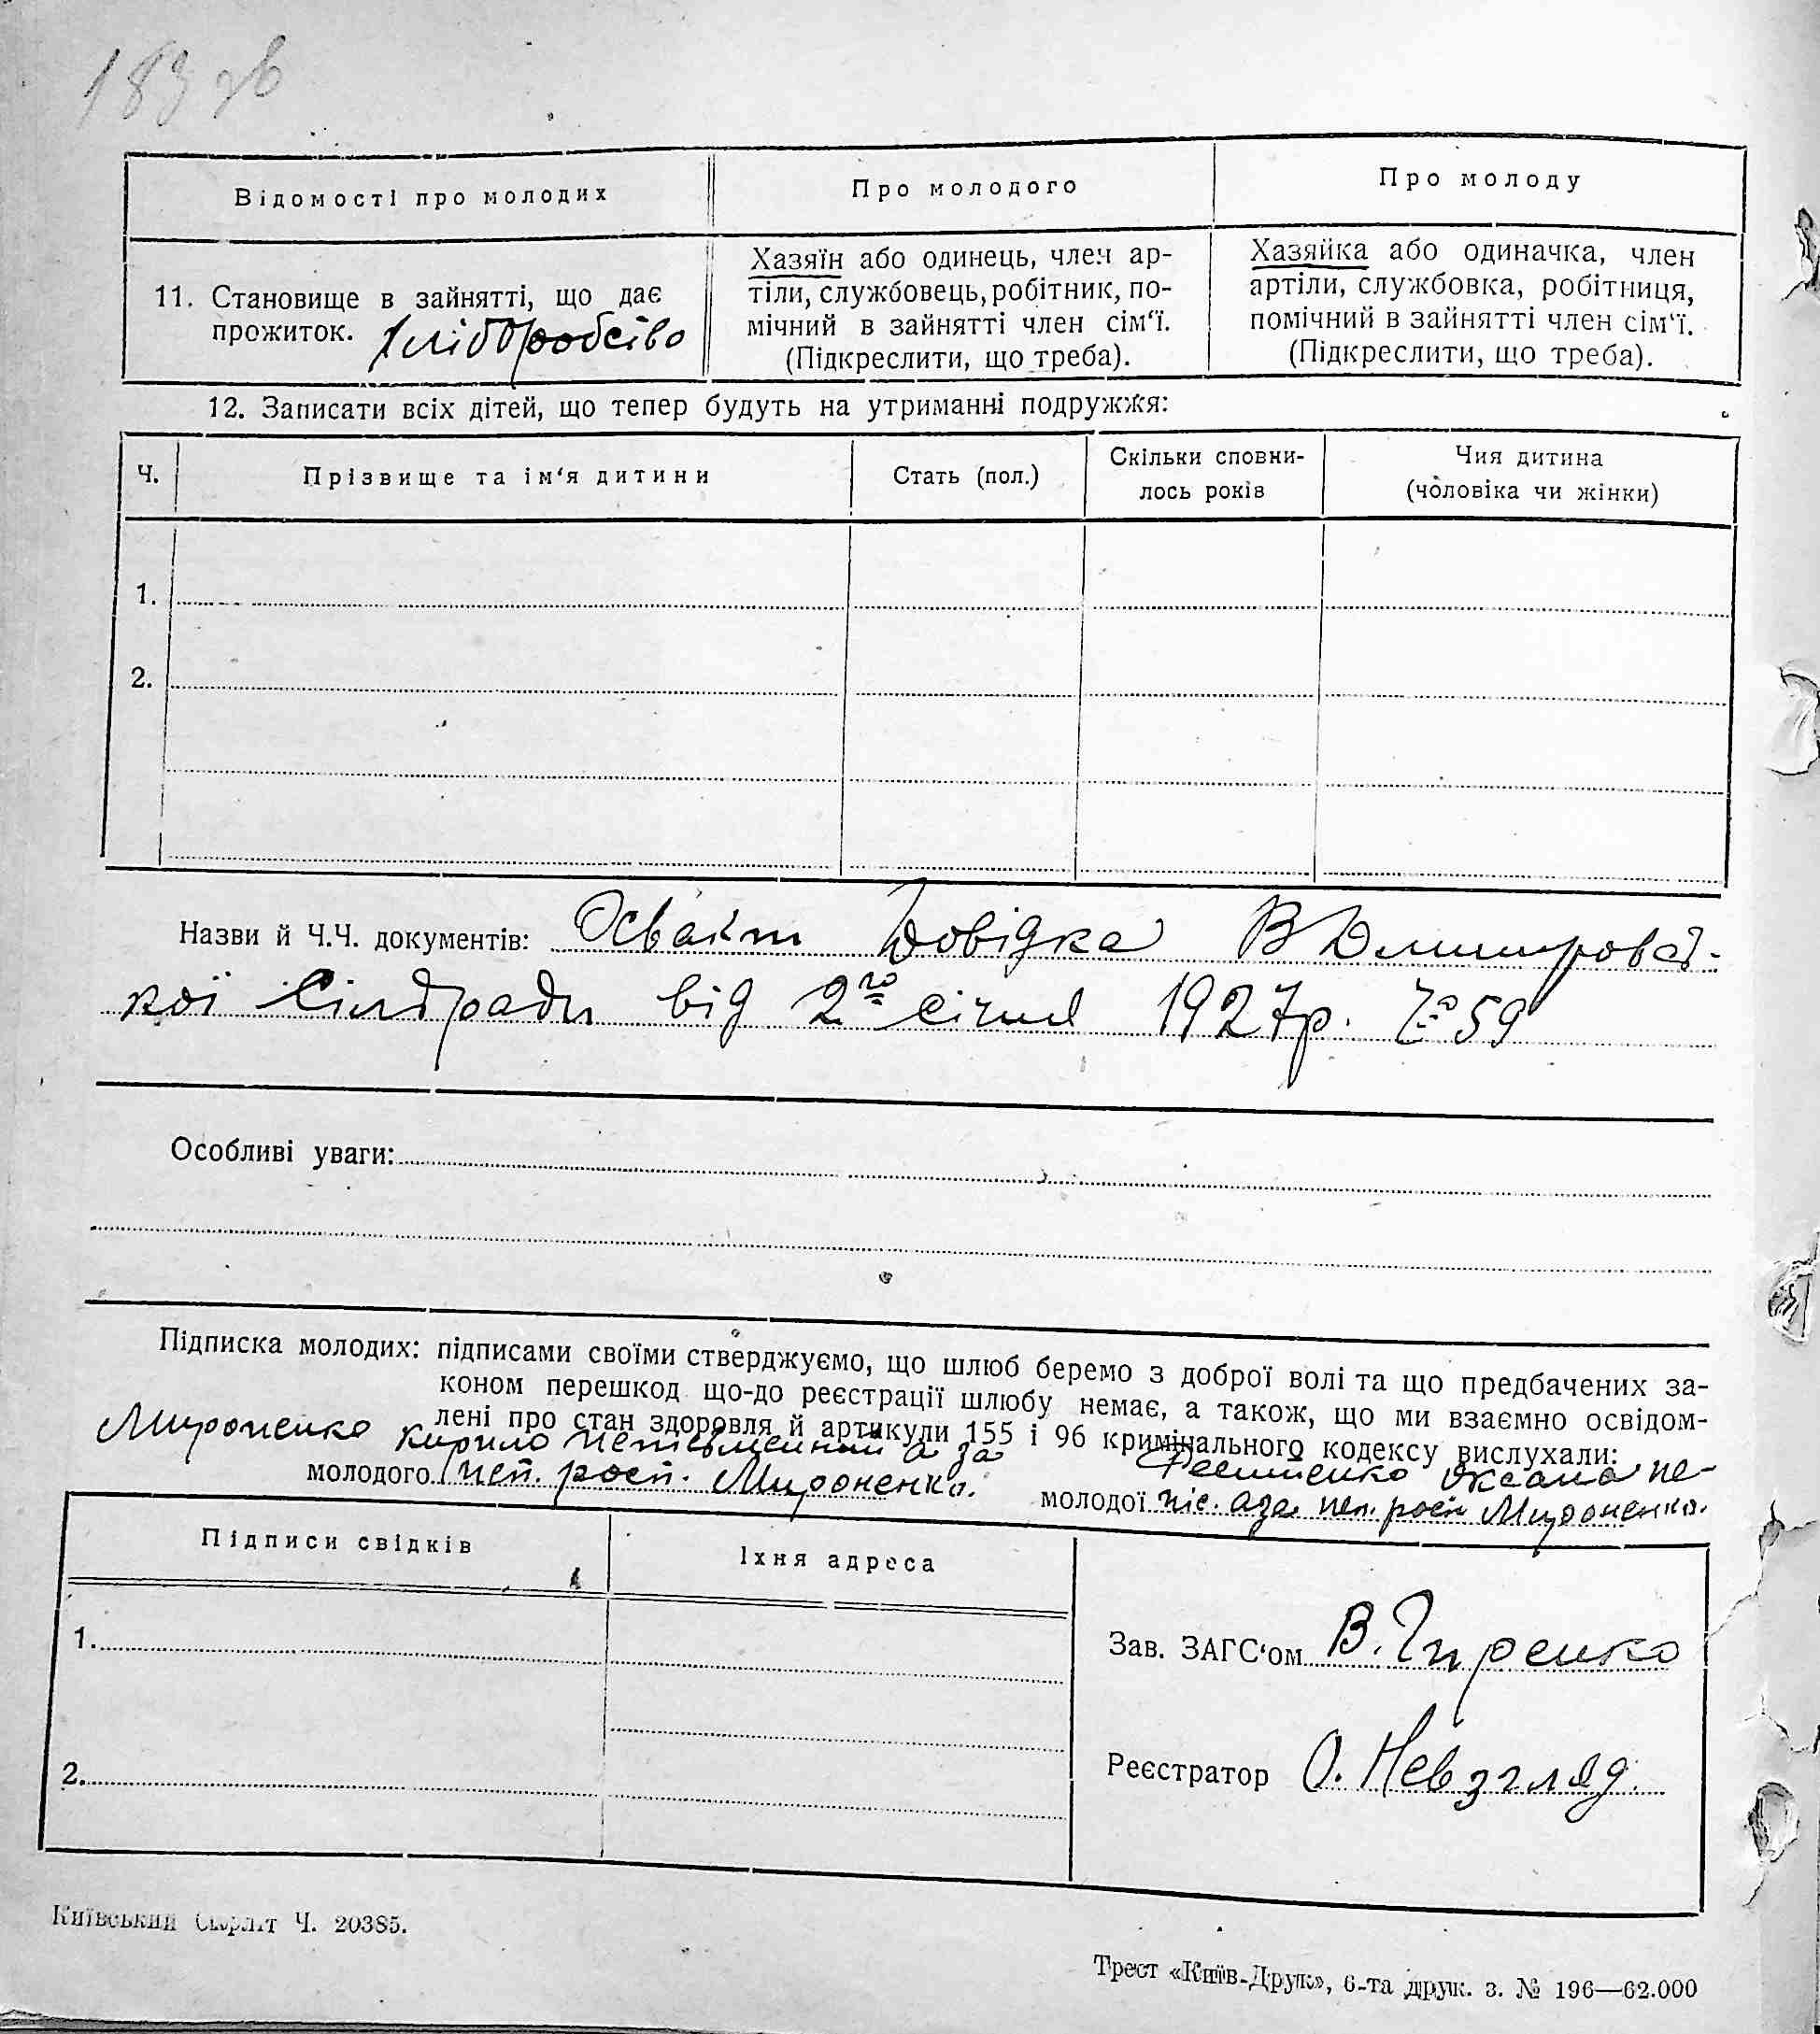 183 зв
Відомості про молодих
Про молодого
Про молоду
11. Становище в зайнятті, що дає
прожиток. Хліборобство
Хазяїн або одинець, член ар-
тіли, службовець, робітник, по-
мічний в зайнятті член сім‘ї.
(Підкреслити, що треба).
Хазяйка або одиначка, член
артіли, службовка, робітниця,
помічний в зайнятті член сім‘ї.
(Підкреслити, що треба).
12. Записати всіх дітей, що тепер будуть на утриманні подружжя:
Ч.
Прізвище та ім‘я дитини
Стать (пол.)
Скільки сповни-
лось років
Чия дитина
(чоловіка чи жінки)
1.
2.
Назви й Ч.Ч. документів: Довідка В Дмитровсь-
кої Сільради від 2го січня 1927р. Ч 59
Особливі уваги:
Підписка молодих: підписами своїми стверджуємо, що шлюб беремо з доброї волі та що предбачених за-
коном перешкод що-до реєстрації шлюбу немає, а також, що ми взаємно освідом-
лені про стан здоровля й артикули 155 і 96 кримінального кодексу вислухали:
Мироненко Кирило неписьменний а за
молодого неп. росп. Мироненко.
Оксана не-
молодої пис. а за неп. росп Мироненко.
Підписи свідків
Їхня адреса
1.
2.
Зав. ЗАГС‘ом В. Гиренко
Реєстратор О. Невзгляд.
Київський Окрліт Ч. 20385.
Трест «Київ-Друк», 6-та друк. з. № 196—62.000